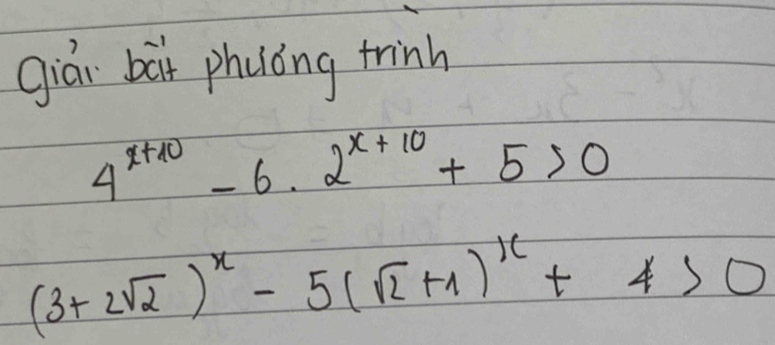 Giải bất phương trình
4^{x+10} - 6 . 2^{x+10} + 5 > 0
(3+2√2)^x - 5(√2+1)^x + 4 > 0